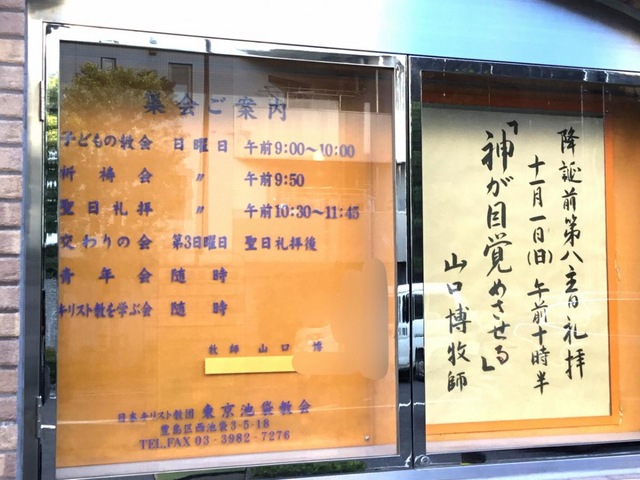 集会ご案内
子どもの教会 日曜日 午前9:00〜10:00
祈祷会 〃 午前9:50
聖日礼拝 〃 午前10:30〜11:45
交わりの会 第3日曜日 聖日礼拝後
青年会 随時
キリスト教を学ぶ会 随時
牧師 山口 博
日本キリスト教団 東京池袋教会
豊島区西池袋3-5-18
TEL.,FAX 03-3982-7276
降誕前第八主日礼拝
十一月一日(日)午前十時半
「神が目覚めさせる」
山口博牧師